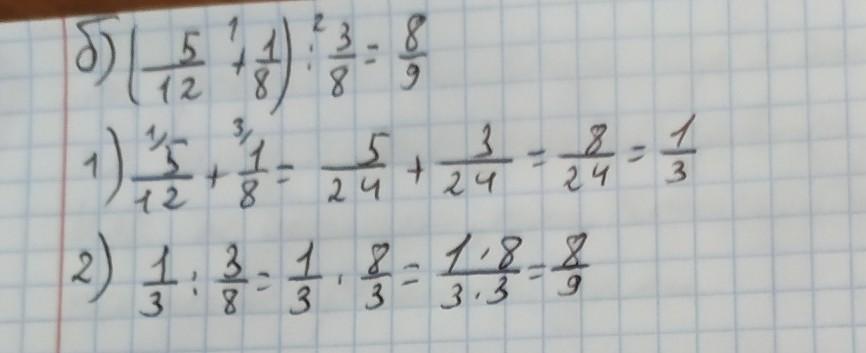 б) (5/12 + 1/8) : 3/8 = 8/9
1) 5/12 + 1/8 = 5/24 + 3/24 = 8/24 = 1/3
2) 1/3 : 3/8 = 1/3 · 8/3 = 1·8/3·3 = 8/9